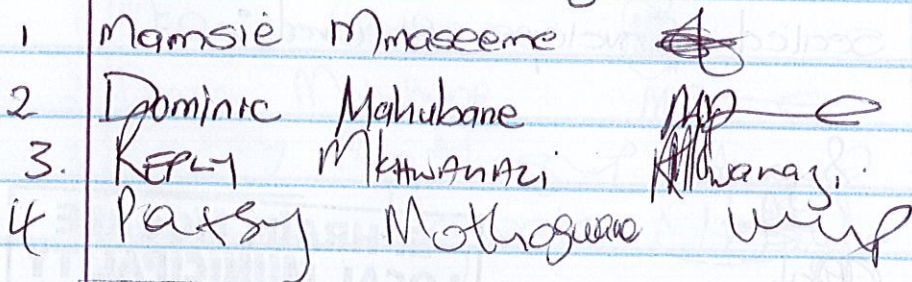 1 Mamsie Mmaseeme
2 Dominic Mahubane
3. REPLY MKHWANAZI KMkhwanazi.
4 Patsy Mothoguane